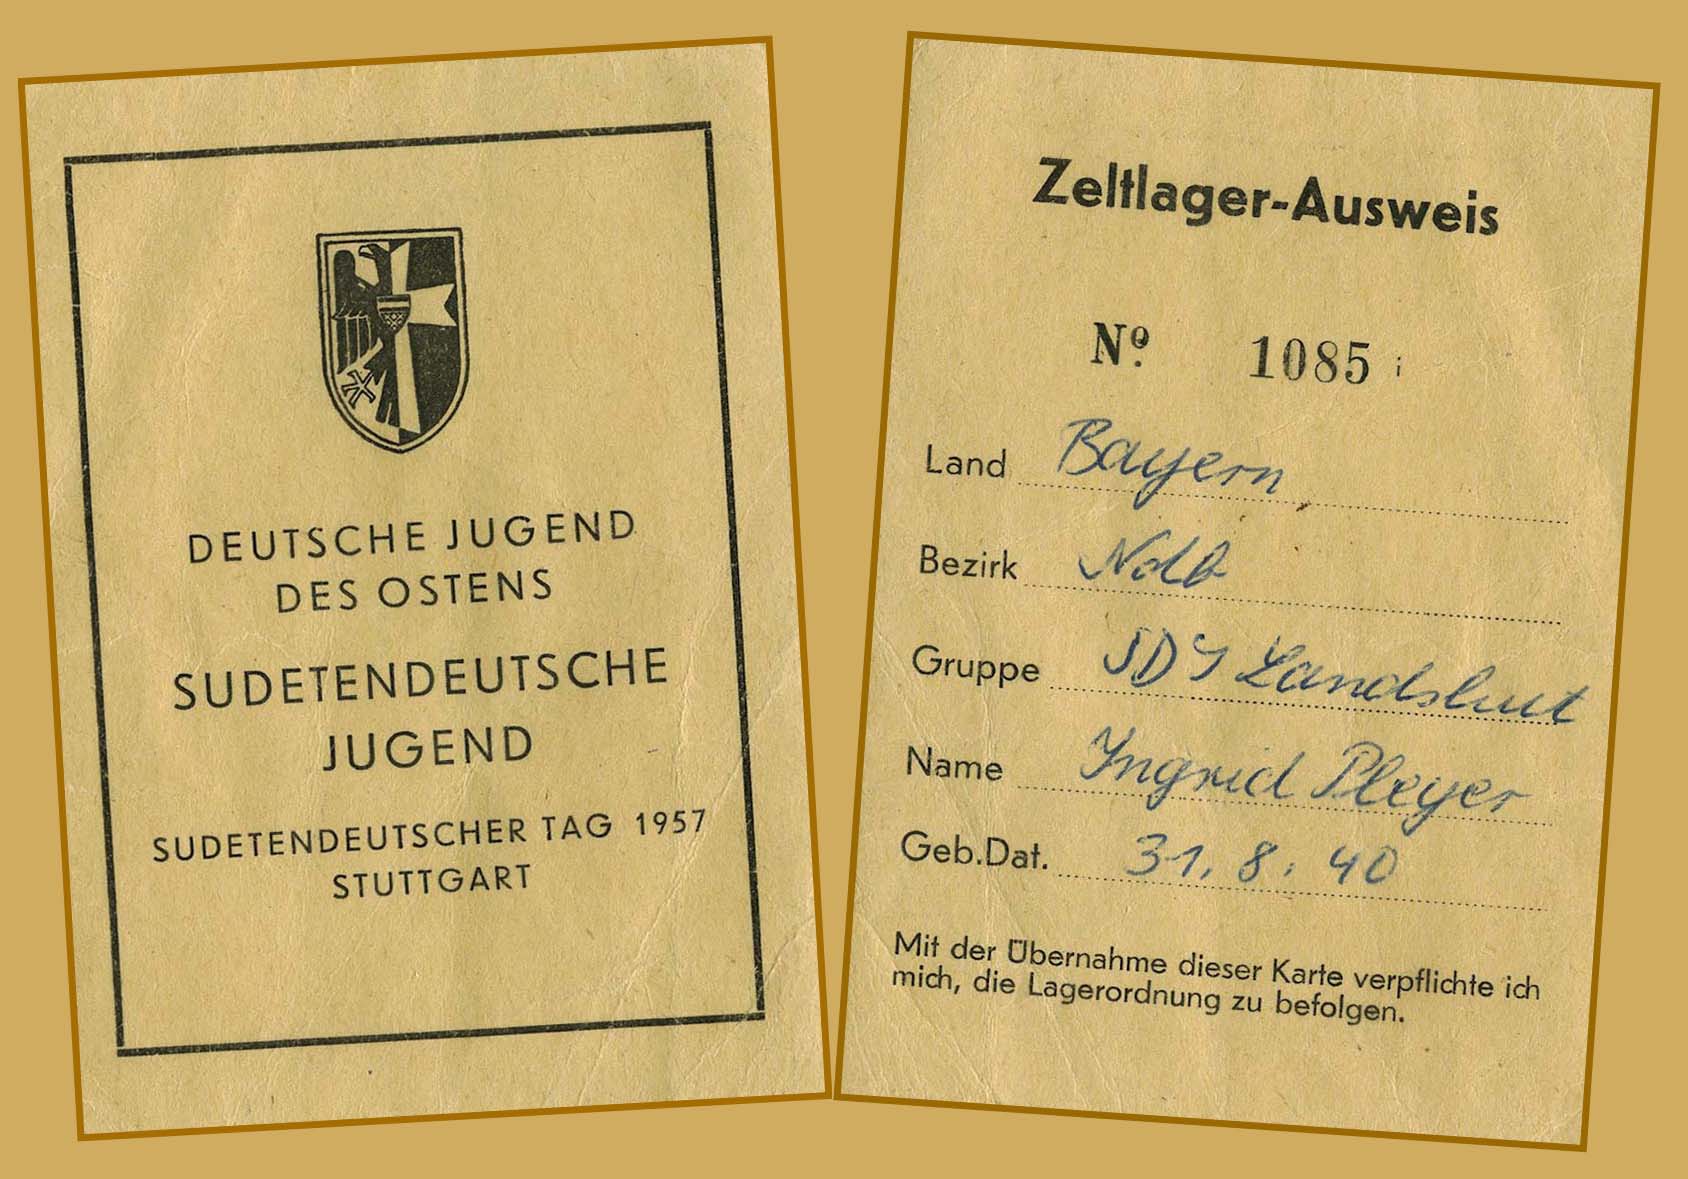 DEUTSCHE JUGEND
DES OSTENS
SUDETENDEUTSCHE
JUGEND
SUDETENDEUTSCHER TAG 1957
STUTTGART
Zeltlager-Ausweis
Nº. 1085
Land Bayern
Bezirk Ndb
Gruppe SDJ Landshut
Name Ingrid Pleyer
Geb.Dat. 31. 8. 40
Mit der Übernahme dieser Karte verpflichte ich
mich, die Lagerordnung zu befolgen.